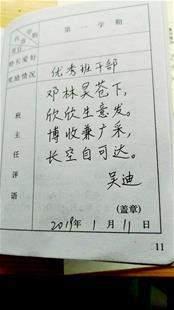 第一学期
特长爱好
奖励情况
优秀班干部
邓林昊苍下,
欣欣生意发。
博收兼广采,
长空自可达。
吴迪
班主任评语
(盖章)
2019年1月11日
11